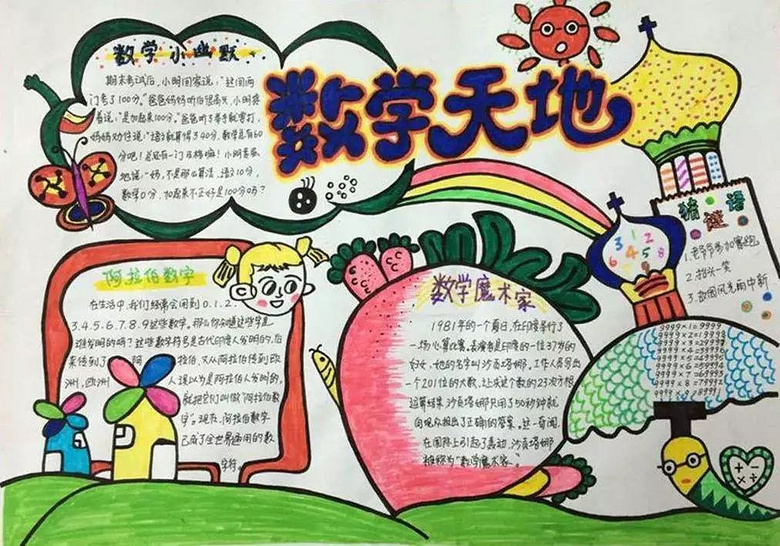 数学小幽默
期末考试后，小明回家说，“这回两
门考了100分。”爸爸妈妈听后很高兴，小明接
着说：“是加起来100分。”爸爸听了举手就要打，
妈妈劝住说：“语文就算得了40分，数学总有60
分吧！总还有一门及格嘛！小明委屈
地说：“妈，不是那么算法，语文10分，
数学0分，加起来不正好是100分吗？
数学天地
猜谜语
1.老爷爷参加赛跑
2.抬头一笑
3.故国风光雨中新
阿拉伯数字
在生活中，我们经常会用到0.1.2.
3.4.5.6.7.8.9这些数字。那么你知道这些字是
谁发明的吗？这些数字符号是古代印度人发明的，后
来传到了阿拉伯，又从阿拉伯传到欧
洲，欧洲人误以为是阿拉伯人发明的，
就把它们叫做“阿拉伯数
字”。现在，阿拉伯数字
已成了全世界通用的数
字符.
数学魔术家
1981年的一个夏日，在印度举行了
一场心算比赛。表演者是印度的一位37岁的
妇女，她的名字叫沙贡塔娜。工作人员写出
一个201位的大数，让求这个数的23次方根
运算结果，沙贡塔娜只用了50秒钟就
向观众报出了正确的答案。这一奇闻，
在国际上引起了轰动，沙贡塔娜
被称为“数学魔术家”。
3 1 2
6 4 5 8
9999×1=9999
+ -
× ÷